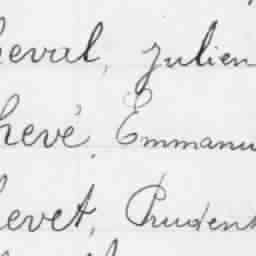 heval, Julien
hevé, Emmanu
hevet, Prudent